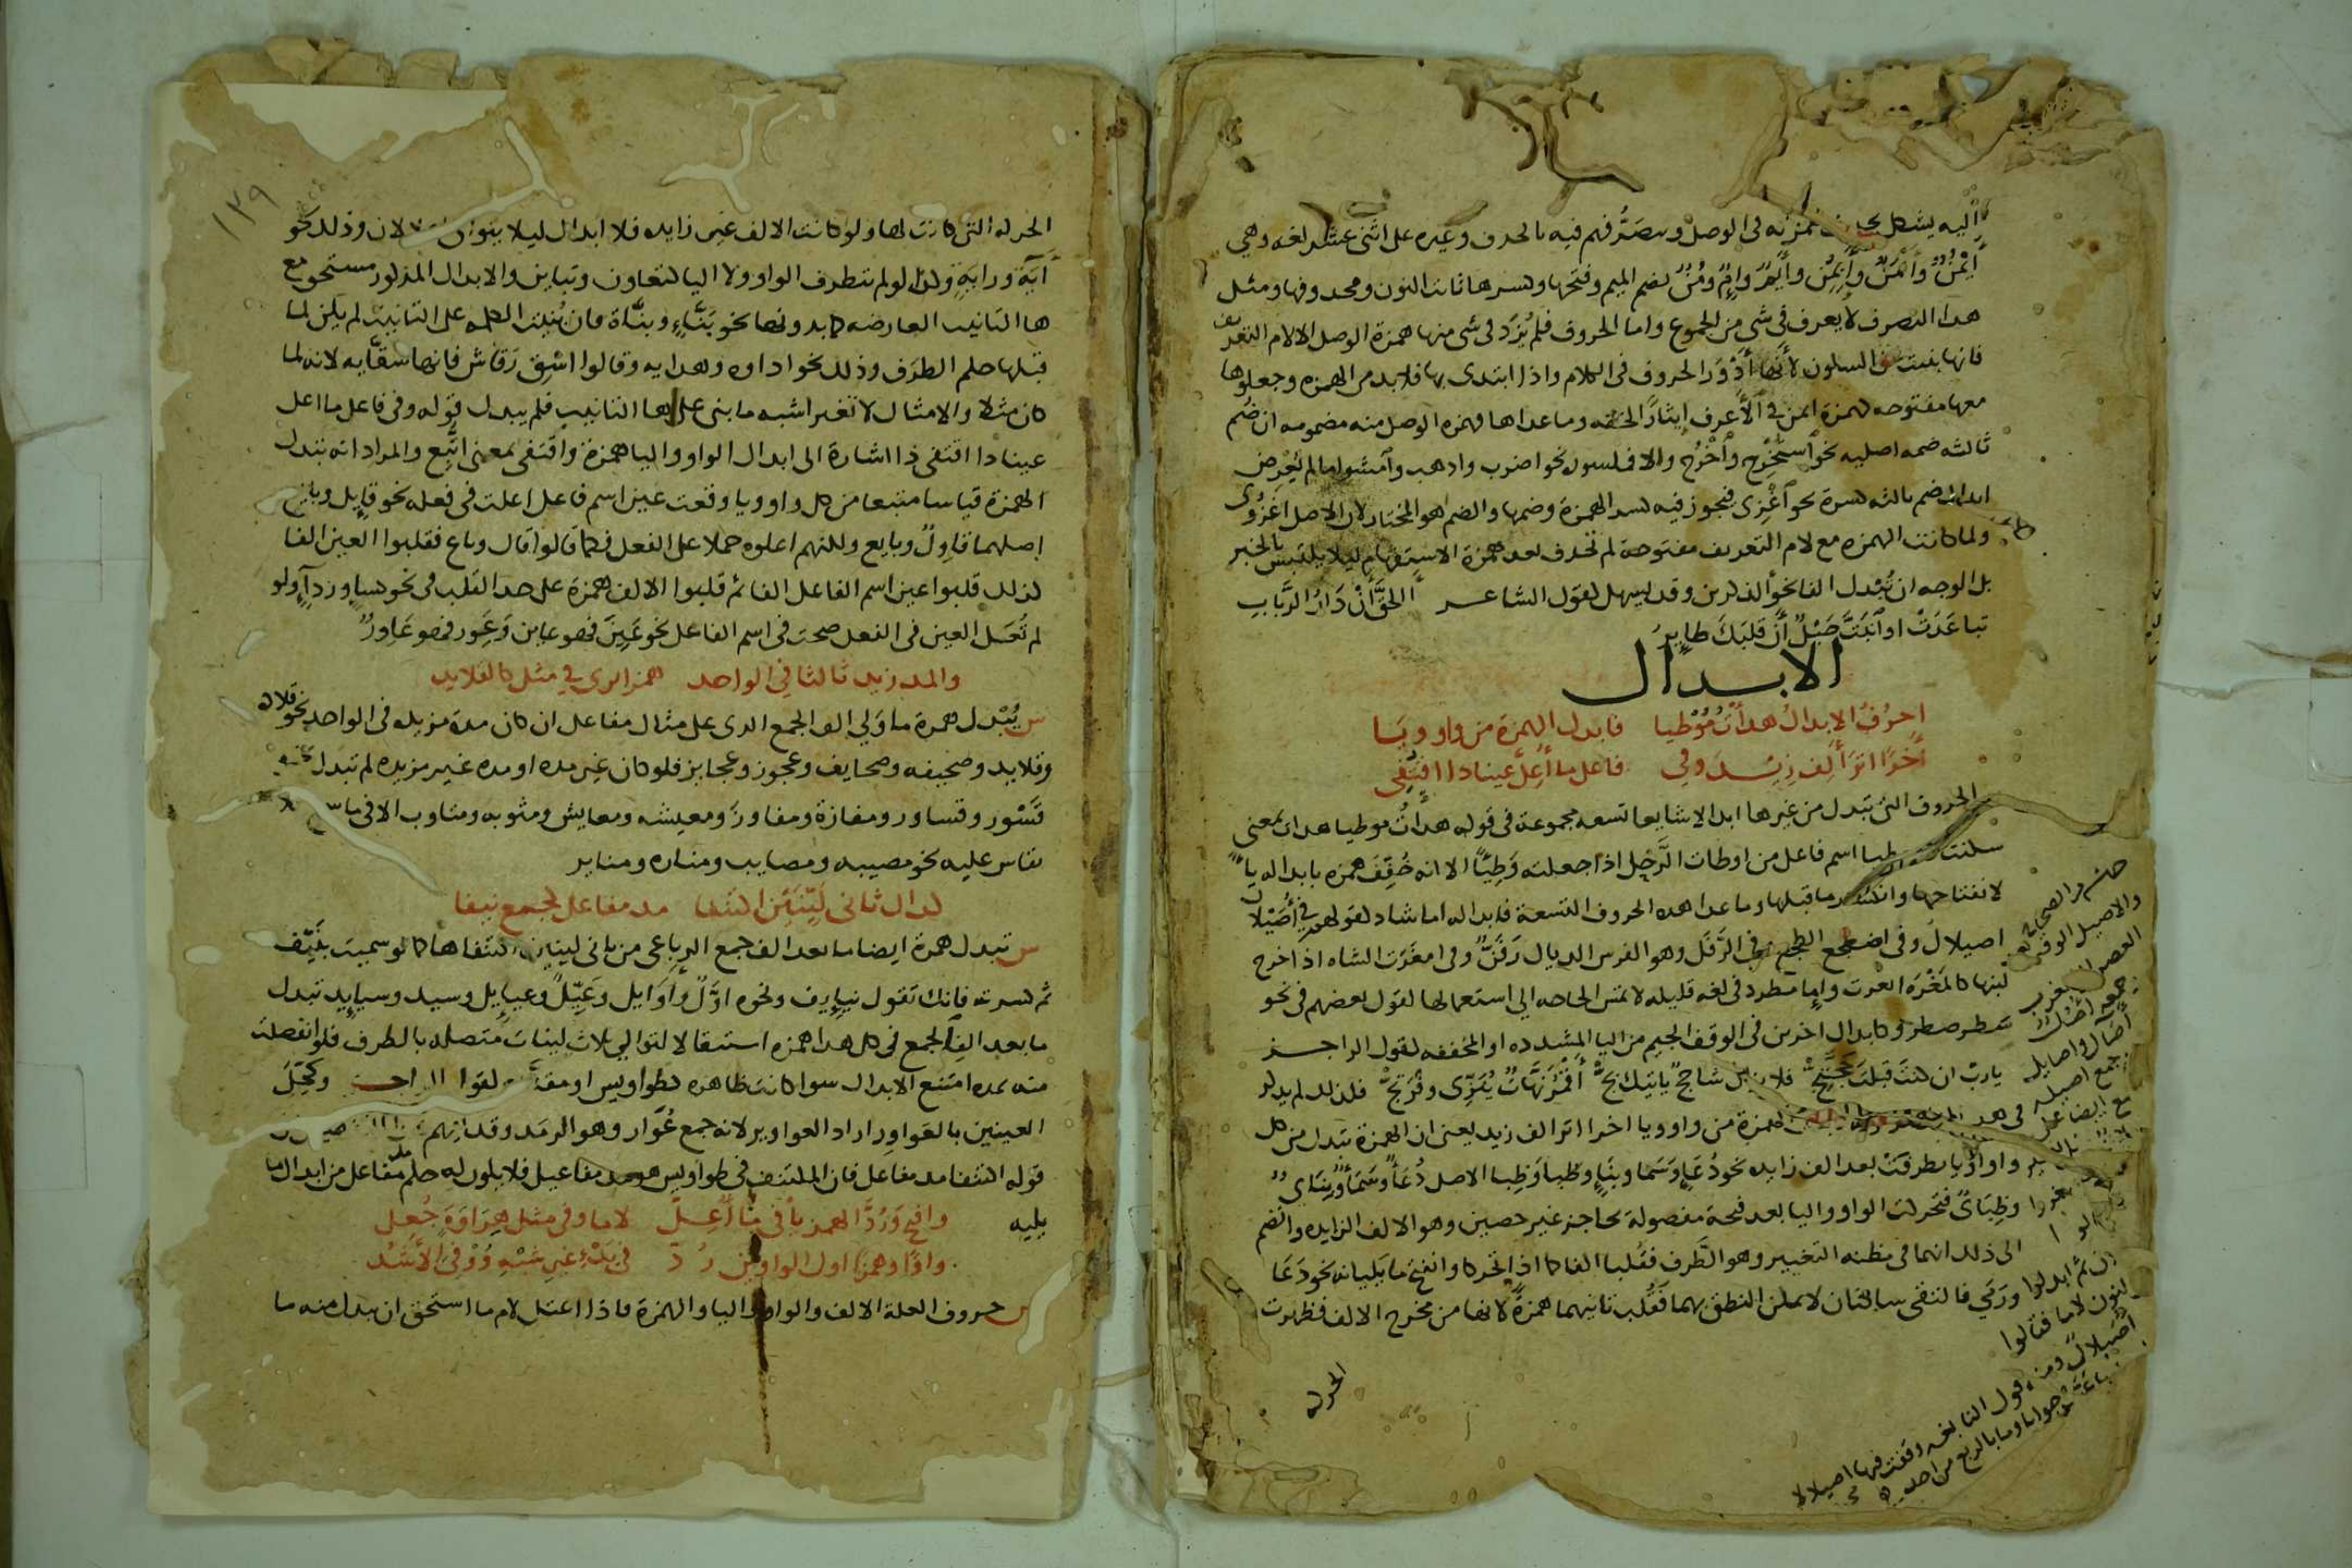 اليه يشكل بحذف همزته في الوصل وتصرفهم فيه بالحذف وغيره على اثنى عشر لغه وهي
أَيْمُنُ وأَيْمَنُ وإِيمُن وأَيمُ وإِمُ ومُنُ بضم الميم وفتحها وكسرها ثابت النون ومحذوفها ومثل
هدا التصرف لا يعرف في شى من الجموع واما الحروف فلم يُزَد في شى منها همزة الوصل الا لام التعريف
فانها بنيت على السكون لأنها أَدْوَر الحروف في الكلام واذا ابتدى بها فلا بد من الهمزه وجعلوها
معها مفتوحه كهمزة ايمن في الأعرف إيثارًا للخفه وما عداها فهمزه الوصل منه مضمومه ان ضُم
ثالثه ضمه اصليه نحو اُستُخرج واُخْرُج والا فمكسوره نحو اضرب واذهب وامشوا ما لم يُعْرض
ابدال ضم ثالثه كسرة نحو اُغْزِى فيجوز فيه كسر الهمزة وضمها والضم هو المختار لان الاصل اغزُوى
ولما كانت الهمزه مع لام التعريف مفتوحة لم تحذف بعد همزة الاستفهام ليلا يلتبس بالخبر
بل الوجه ان تُبْدل الفا نحو آلذكرين وقد تسهل كقول الشاعر أالحقَّ أَنْ دَارُ الرَّباب
تباعَدَتْ او اَنبَتَّ حَبْلٌ أَنَّ قلبَكَ طايرُ
الابدال
احرُفُ الابدالُ هدأتَ مُوْطيا فابدل الهمزة من واو ويَا
آخرًا اثرَ أَلِف زِيْدَ وفي فاعل ما أُعِلَّ عينا دا اقتُفِى
الحروف التى تبدل من غيرها ابدالا شايعا تسعه مجموعة في قوله هدأتُ موطيا هدات بمعنى
سكنت وموطيا اسم فاعل من اوطات الرَّحْل اذا جعلته وَطِيًّا الا انه خُفِّفَ همزه بابداله ياً
لانفتاحها وانكسار ما قبلها وما عدا هده الحروف التسعة فابداله اما شاذ كقولهم في أُصَيْلان
اصيلال وفي اضطجع الطجع وفي الرَّفَل وهو الفرس الديال رَفَنّ وفي امغَرَت الشاه اذا خرج
لبنها كالمَغْرَه انغرت وإما مطرد في لغه قليله لا تمس الحاجه الي استعمالها كقول بعضهم في نحو
سطر صطر وكابدال اخرين في الوقف الجيم من اليا المشدده او المخففه كقول الراجز
ياربّ ان كنتَ قَبلتَ حَجَّتِجْ فلا يزال شاحجٌ ياتيك بِجْ أَقْمَرُ نَهَّاتٌ يُنَزِّى وفْرَتِجْ فلذلك لم يذكر
الهمزة من واو ويا اخرا اثر الف زيد يعنى ان الهمزة تبدل من كل
واو او يا تطرفتْ بعد الف زايده نحو دُعَاءٍ وسَمَا وبِنَاءٍ وظبا وظِبا الاصل دُعَاوٌ وسَمَاوٌ وبِنَاىٌ
وظِبَاىٌ فتحركت الواو واليا بعد فتحة مفصولة بحاجز غير حصين وهو الالف الزايده وانضم
الى ذلك انهما في مظنه التغيير وهو الطَّرف فقلبا الفا كما اذا تحركا وانفتح ما يليانه نحو دَعَا
ورَمَي فالتقى ساكنان لا يمكن النطق بهما فَقُلب ثانيهما همزةً لانها من مخرج الالف فظهرت
الحركه
حاشيه من الصحاح
والاصيل الوقت بعد
العصر الى المغرب
وجمعه أُصُلٌ
وآصال واصايل
كانه جمع اصيله
ثم ابدلوا
النون لاما فقالوا
أُصَيلالٌ ومنه قول النابغه وقفت فيها اصيلالا
جوابا وما بالربع من احد
١٣٩
الحركه التى كانت لها ولو كانت الالف غير زايده فلا ابدال ليلا يتوالى اعلالان وذلك نحو
آيَة وراية وكذا لو لم تتطرف الواو ولا اليا كتعاون وتباين والابدال المذكور مستحق مع
ها التانيث العارضه كما بدونها نحو بَنَّاءٍ وبنَّاءة فان بُنِيت الكلمه على التانيث لم يكن لما
قبلها حكم الطرَف وذلك نحو اداوه وهدايه وقالوا اسْقِ رَقَاشِ فانها سقَّايه لانه لما
كان مثلا والامثال لا تغير اشبه ما بنى على ها التانيث فلم يبدل قوله وفي فاعل ما اعل
عينا دا اقتفى ذا اشارة الى ابدال الواو واليا همزة واقتفى بمعنى اتُّبِع والمراد انه تبدل
الهمزة قياسا متبعا من كل واو ويا وقعت عين اسم فاعل اعلت في فعله نحو قايِل وبايع
اصلهما قاوِلٌ وبايع ولكنهم اعلوه حملا على الفعل فكما قالوا قال وباع فقلبوا العين الفا
كذلك قلبوا عين اسم الفاعل الفا ثم قلبوا الالف همزة على حد القلب في نحو كساءٍ ورداءٍ ولو
لم تُعَل العين في الفعل صحت في اسم الفاعل نحو عَيِنَ فهو عاين وعَوِر فهو عَاوِرٌ
والمد زيد ثالثا في الواحد همزا يرى في مثل كالقلايد
س يُبْدل همزة ما وَلي الف الجمع الدى على مثال مفاعل ان كان مدة مزيده في الواحد نحو قلاده
وقلايد وصحيفه وصحايف وعجوز وعجايز فلو كان غير مده او مده غير مزيده لم تبدل
قَسْوَر وقساور ومفازة ومفاوز ومعيشه ومعايش ومثوبه ومثاوب الا في ما
يقاس عليه نحو مصيبه ومصايب ومناره ومناير
كداك ثانى لَيِّنَيْن اكتنفا مد مفاعل كجمع نيفا
س تبدل همزة ايضا ما بعد الف جمع الرباعى من ثانى لينين اكتنفاها كما لو سميت بنَيِّف
ثم كسرته فانك تقول نيايِف ونحوه اوَّل وأَوَايل وعَيِّل وعيايل وسيد وسيايِد تبدل
ما بعد الف الجمع في كل هدا همزه استثقالا لتوالي ثلاث لينات متصله بالطرف فلو انفصلت
منه بمده امتنع الابدال سوا كانت ظاهره كطواويس او مقدره كقول الراجز وكحَّلَ
العينين بالعَوَاوِر اراد العواوير لانه جمع عُوَّار وهو الرمَد وقد افهم
قوله اكتنفا مد مفاعل فان المكتنف في طواويس هو مد مفاعيل فلا يكون له حكم مد مفاعل من ابدال ما
يليه
وافتح ورُدَّ الهمز يا في ما أُعِلّ لاما وفي مثل هِرَاوَةٍ جُعِل
واوًا وهمزا اول الواوين رُدّ في بَدْءِ غيرِ شبْهِ وُوْفِى الأَشُدّ
س حروف العلة الالف والواو واليا والهمزة فاذا اعتل لام ما استحق ان يبدل منه ما